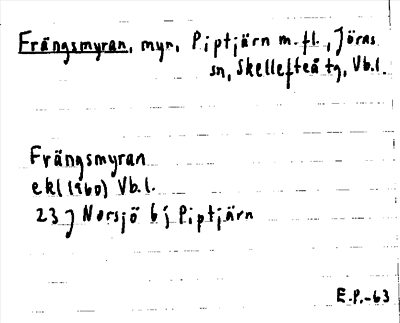 Frängsmyran, myr, Piptjärn m.fl., Jörns
sn, Skellefteå tg, Vb.l.
Frängsmyran
ekl (1960) Vb.l.
23 J Norsjö bj Piptjärn
E.P.-63